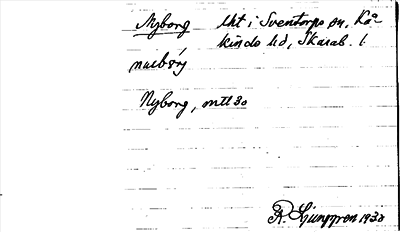 Nyborg lht i Sventorps sn. Kå-
kinds hd, Skarab. l.
Nyborg, mtl 30
R. Ljunggren 1930